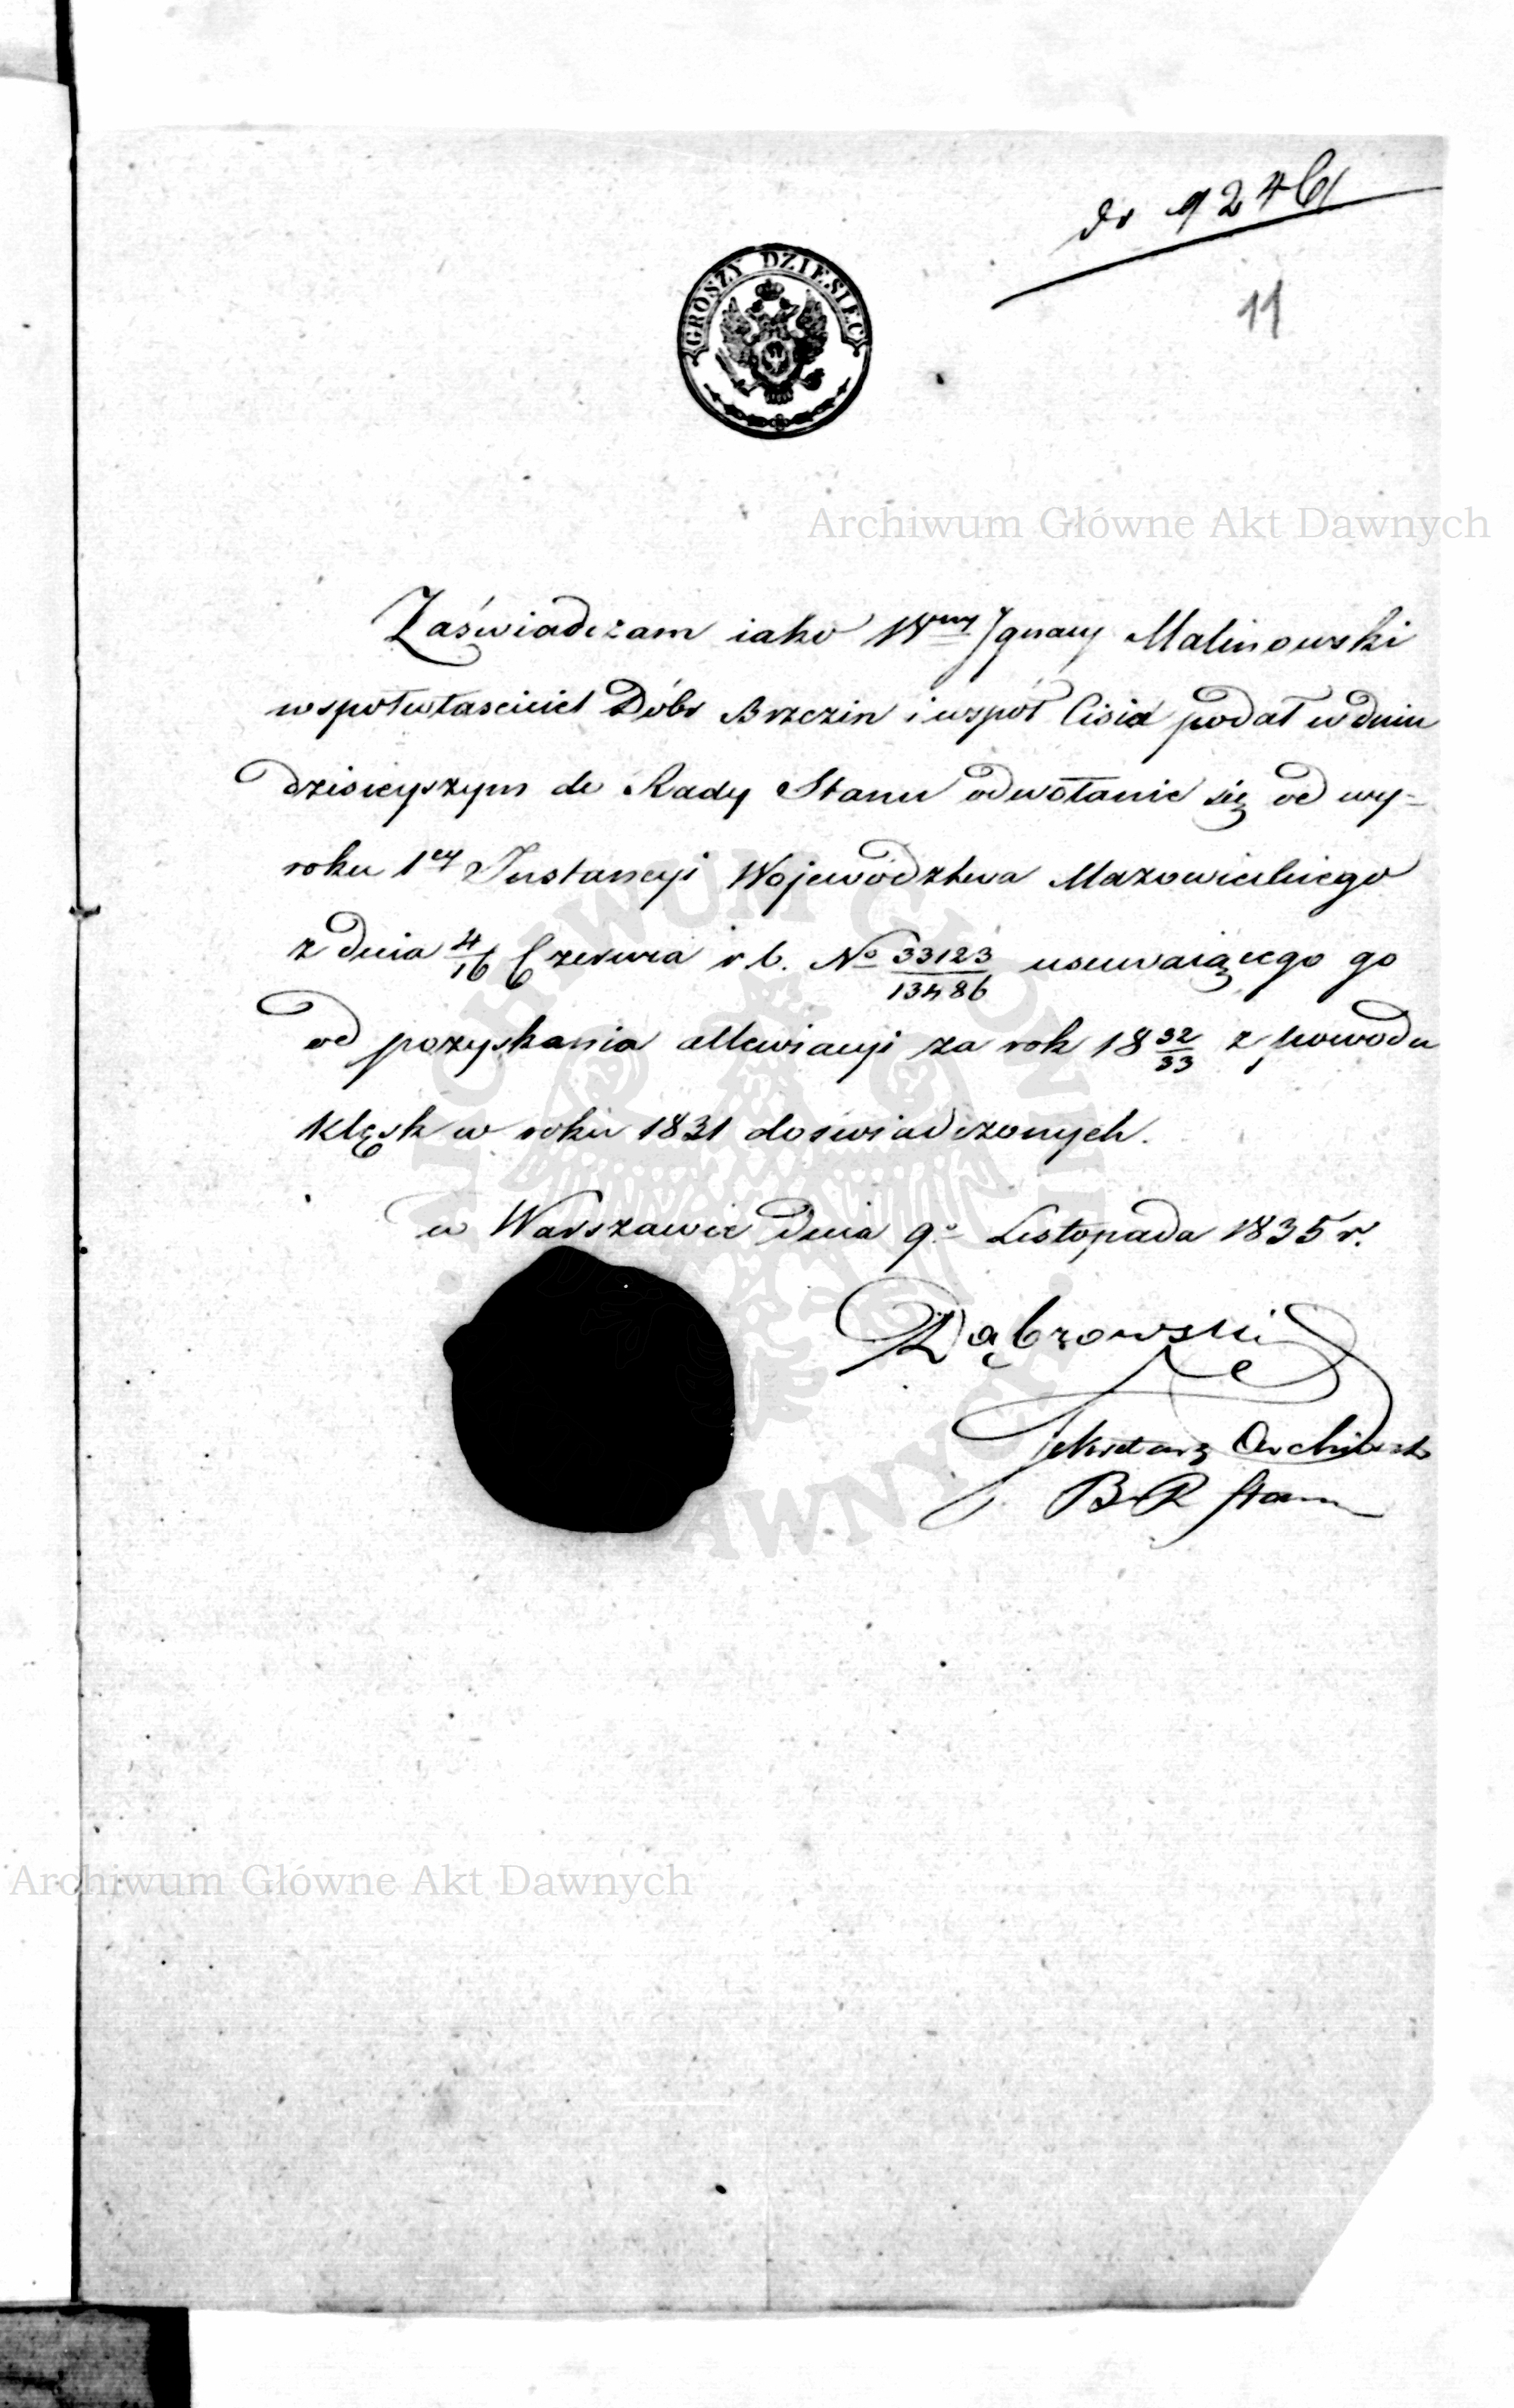 do 9246
11
GROSZY DZIESIĘC
Archiwum Główne Akt Dawnych
Zaświadczam iako Wny Ignacy Malinowski
wspołwłasciciel Dóbr Brzezin i współ Cisia podał w dniu
dzisieyszym do Rady Stanu odwołanie się od wy=
roku 1ey Instancyi Województwa Mazowieckiego
z dnia 4/16 Czerwca r. b. No 33123/13486 usuwaiącego go
od pozyskania allewiacyi za rok 18 32/33 z powodu
klęsk w roku 1831 doswiadczonych.
w Warszawie dnia 9o Listopada 1835 r.
Dąbrowski
Sekretarz Archiwista
B R Stanu
ARCHIWUM GŁÓWNE AKT DAWNYCH
Archiwum Główne Akt Dawnych